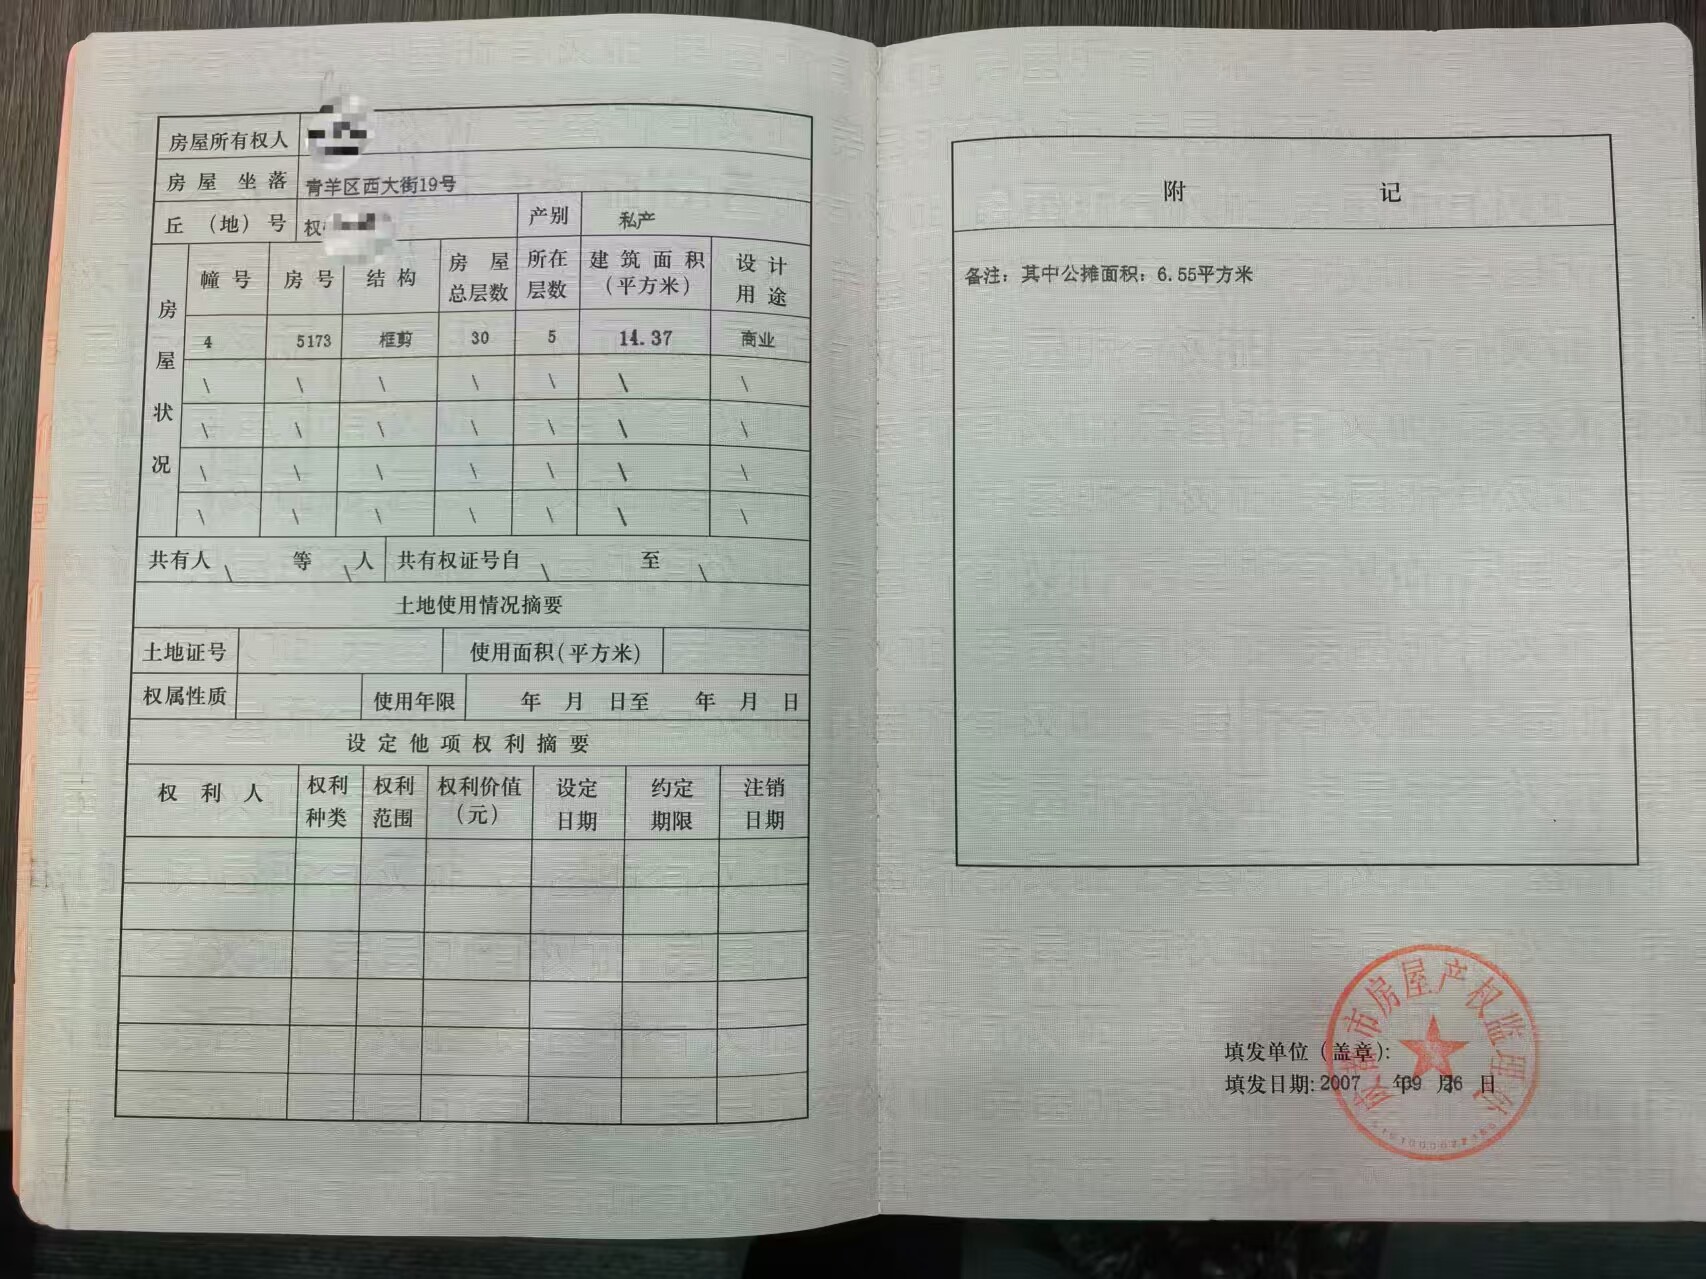 房屋所有权人
房屋坐落 青羊区西大街19号
丘（地）号 权 产别 私产
房屋状况
幢号 房号 结构 房屋总层数 所在层数 建筑面积（平方米） 设计用途
4 5173 框剪 30 5 14.37 商业
\ \ \ \ \ \ \
\ \ \ \ \ \ \
\ \ \ \ \ \ \
\ \ \ \ \ \ \
共有人 \ 等 \ 人 共有权证号自 \ 至 \
土地使用情况摘要
土地证号 使用面积(平方米)
权属性质 使用年限 年 月 日至 年 月 日
设定他项权利摘要
权利人 权利种类 权利范围 权利价值（元） 设定日期 约定期限 注销日期
附 记
备注：其中公摊面积：6.55平方米
填发单位（盖章）：
填发日期：2007 年09 月26 日
成都市房屋产权监理处